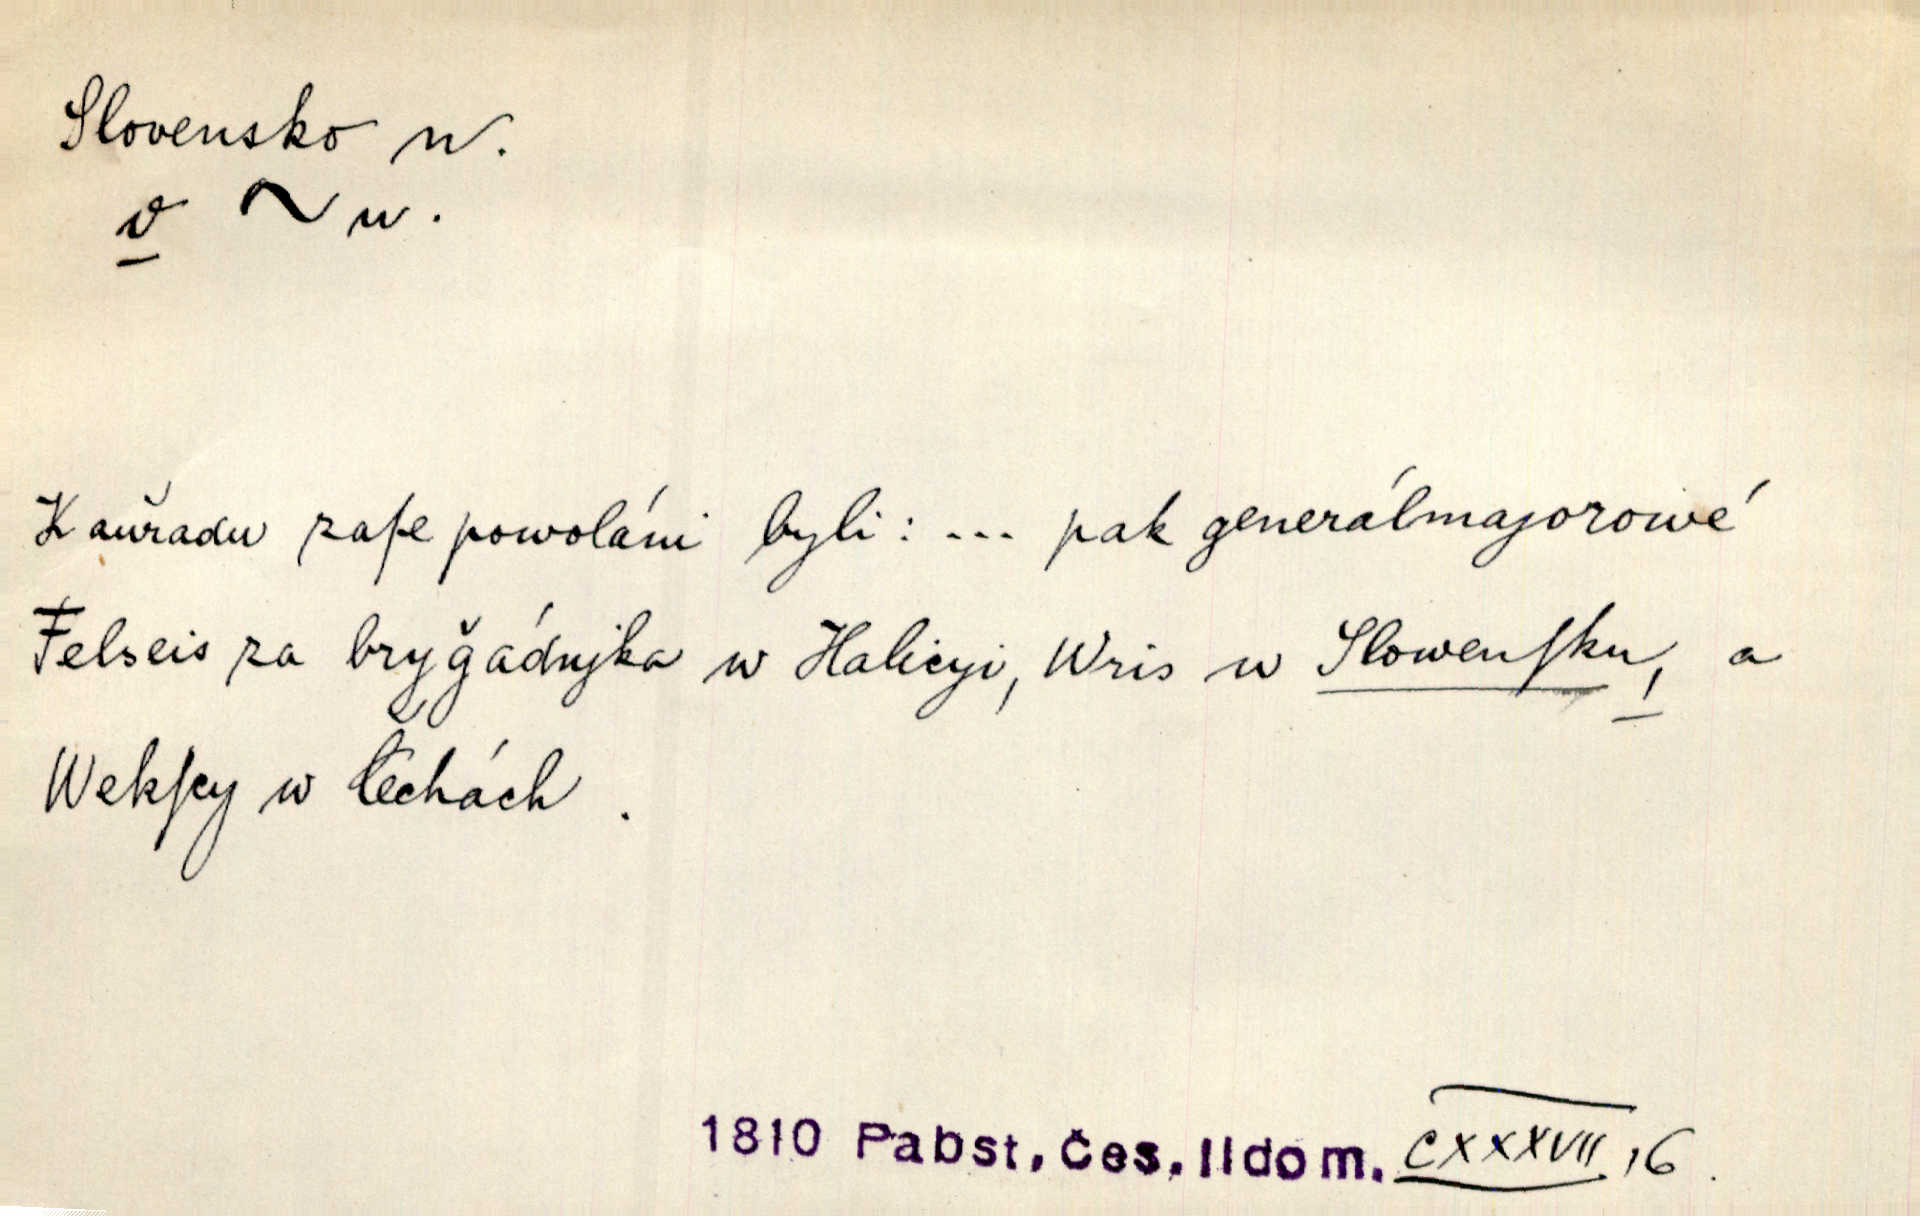 Slovensko n.
v ~ u.
K auřadu zaſe powoláni byli: --- pak generálmajorowé
Felseis za bryǧádnjka w Halicyi, Wris w Slowenſku, a
Wekſey w Čechách .
1810 Pabst, čes. II dom. CXXXVII, 6 .